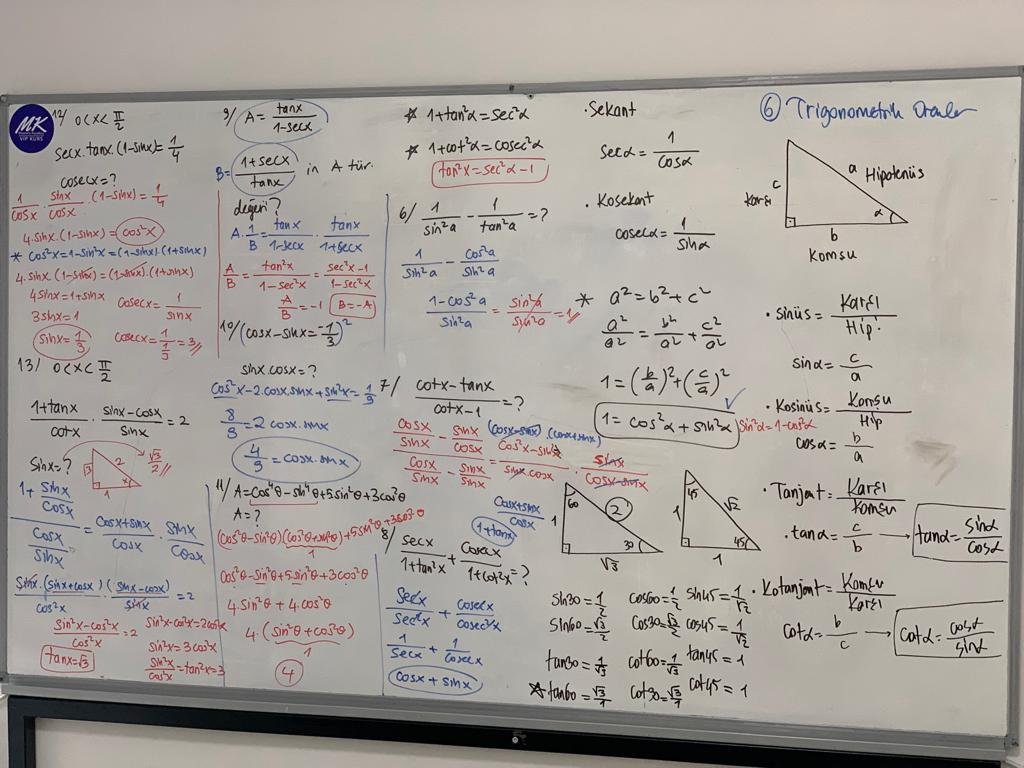 MK
VIP KURS
12/ 0<x<π/2
secx.tanx.(1-sinx)=1/4
cosecx=?
1/cosx . sinx/cosx . (1-sinx)=1/4
4.sinx.(1-sinx)=cos²x
* cos²x=1-sin²x=(1-sinx).(1+sinx)
4.sinx.(1-sinx)=(1-sinx).(1+sinx)
4sinx=1+sinx
3sinx=1
sinx=1/3
cosecx=1/sinx
cosecx=1/(1/3)=3
13/ 0<x<π/2
(1+tanx)/cotx . (sinx-cosx)/sinx = 2
sinx=?
√3
2
1
x
√3/2
(1+sinx/cosx)/(cosx/sinx) = (cosx+sinx)/cosx . sinx/cosx
sinx.(sinx+cosx)/cos²x . (sinx-cosx)/sinx = 2
(sin²x-cos²x)/cos²x=2
tanx=√3
sin²x-cos²x=2cos²x
sin²x=3cos²x
sin²x/cos²x=tan²x=3
9/ A=tanx/(1-secx)
B=(1+secx)/tanx in A tür.
değeri?
A.1/B=tanx/(1-secx) . tanx/(1+secx)
A/B=tan²x/(1-sec²x)=(sec²x-1)/(1-sec²x)
A/B=-1 B=-A
10/ (cosx-sinx=-1/3)²
sinx.cosx=?
cos²x-2.cosx.sinx+sin²x=1/9
8/9=2cosx.sinx
4/9=cosx.sinx
11/ A=cos⁴θ-sin⁴θ+5sin²θ+3cos²θ
A=?
(cos²θ-sin²θ)(cos²θ+sin²θ)+5sin²θ+3cos²θ
1
cos²θ-sin²θ+5sin²θ+3cos²θ
4.sin²θ+4.cos²θ
4.(sin²θ+cos²θ)
1
4
* 1+tan²α=sec²α
* 1+cot²α=cosec²α
tan²x=sec²α-1
6/ 1/sin²a - 1/tan²a=?
1/sin²a - cos²a/sin²a
(1-cos²a)/sin²a = sin²a/sin²a=1
7/ (cotx-tanx)/(cotx-1)=?
(cosx/sinx - sinx/cosx)/(cosx/sinx - sinx/sinx) = (cos²x-sin²x)/(sinx.cosx) . sinx/(cosx-sinx)
(cosx-sinx)(cosx+sinx)
(cosx+sinx)/cosx
1+tanx
8/ secx/(1+tan²x) + cosecx/(1+cot²x)=?
secx/sec²x + cosecx/cosec²x
1/secx + 1/cosecx
cosx+sinx
·Sekant
secα=1/cosα
·Kosekant
cosecα=1/sinα
* a²=b²+c²
a²/a²=b²/a²+c²/a²
1=(b/a)²+(c/a)²
1=cos²α+sin²α
sin²α=1-cos²α
60
1
2
30
√3
45
1
√2
45
1
sin30=1/2 cos60=1/2 sin45=1/√2
sin60=√3/2 cos30=√3/2 cos45=1/√2
tan30=1/√3 cot60=1/√3 tan45=1
☆tan60=√3/1 cot30=√3/1 cot45=1
⑥ Trigonometrik Oranlar
Karşı
c
a Hipotenüs
α
b
Komşu
·sinüs=Karşı/Hip.
sinα=c/a
·Kosinüs=Komşu/Hip
cosα=b/a
·Tanjant=Karşı/Komşu
·tanα=c/b → tanα=sinα/cosα
·Kotanjant=Komşu/Karşı
cotα=b/c → cotα=cosα/sinα